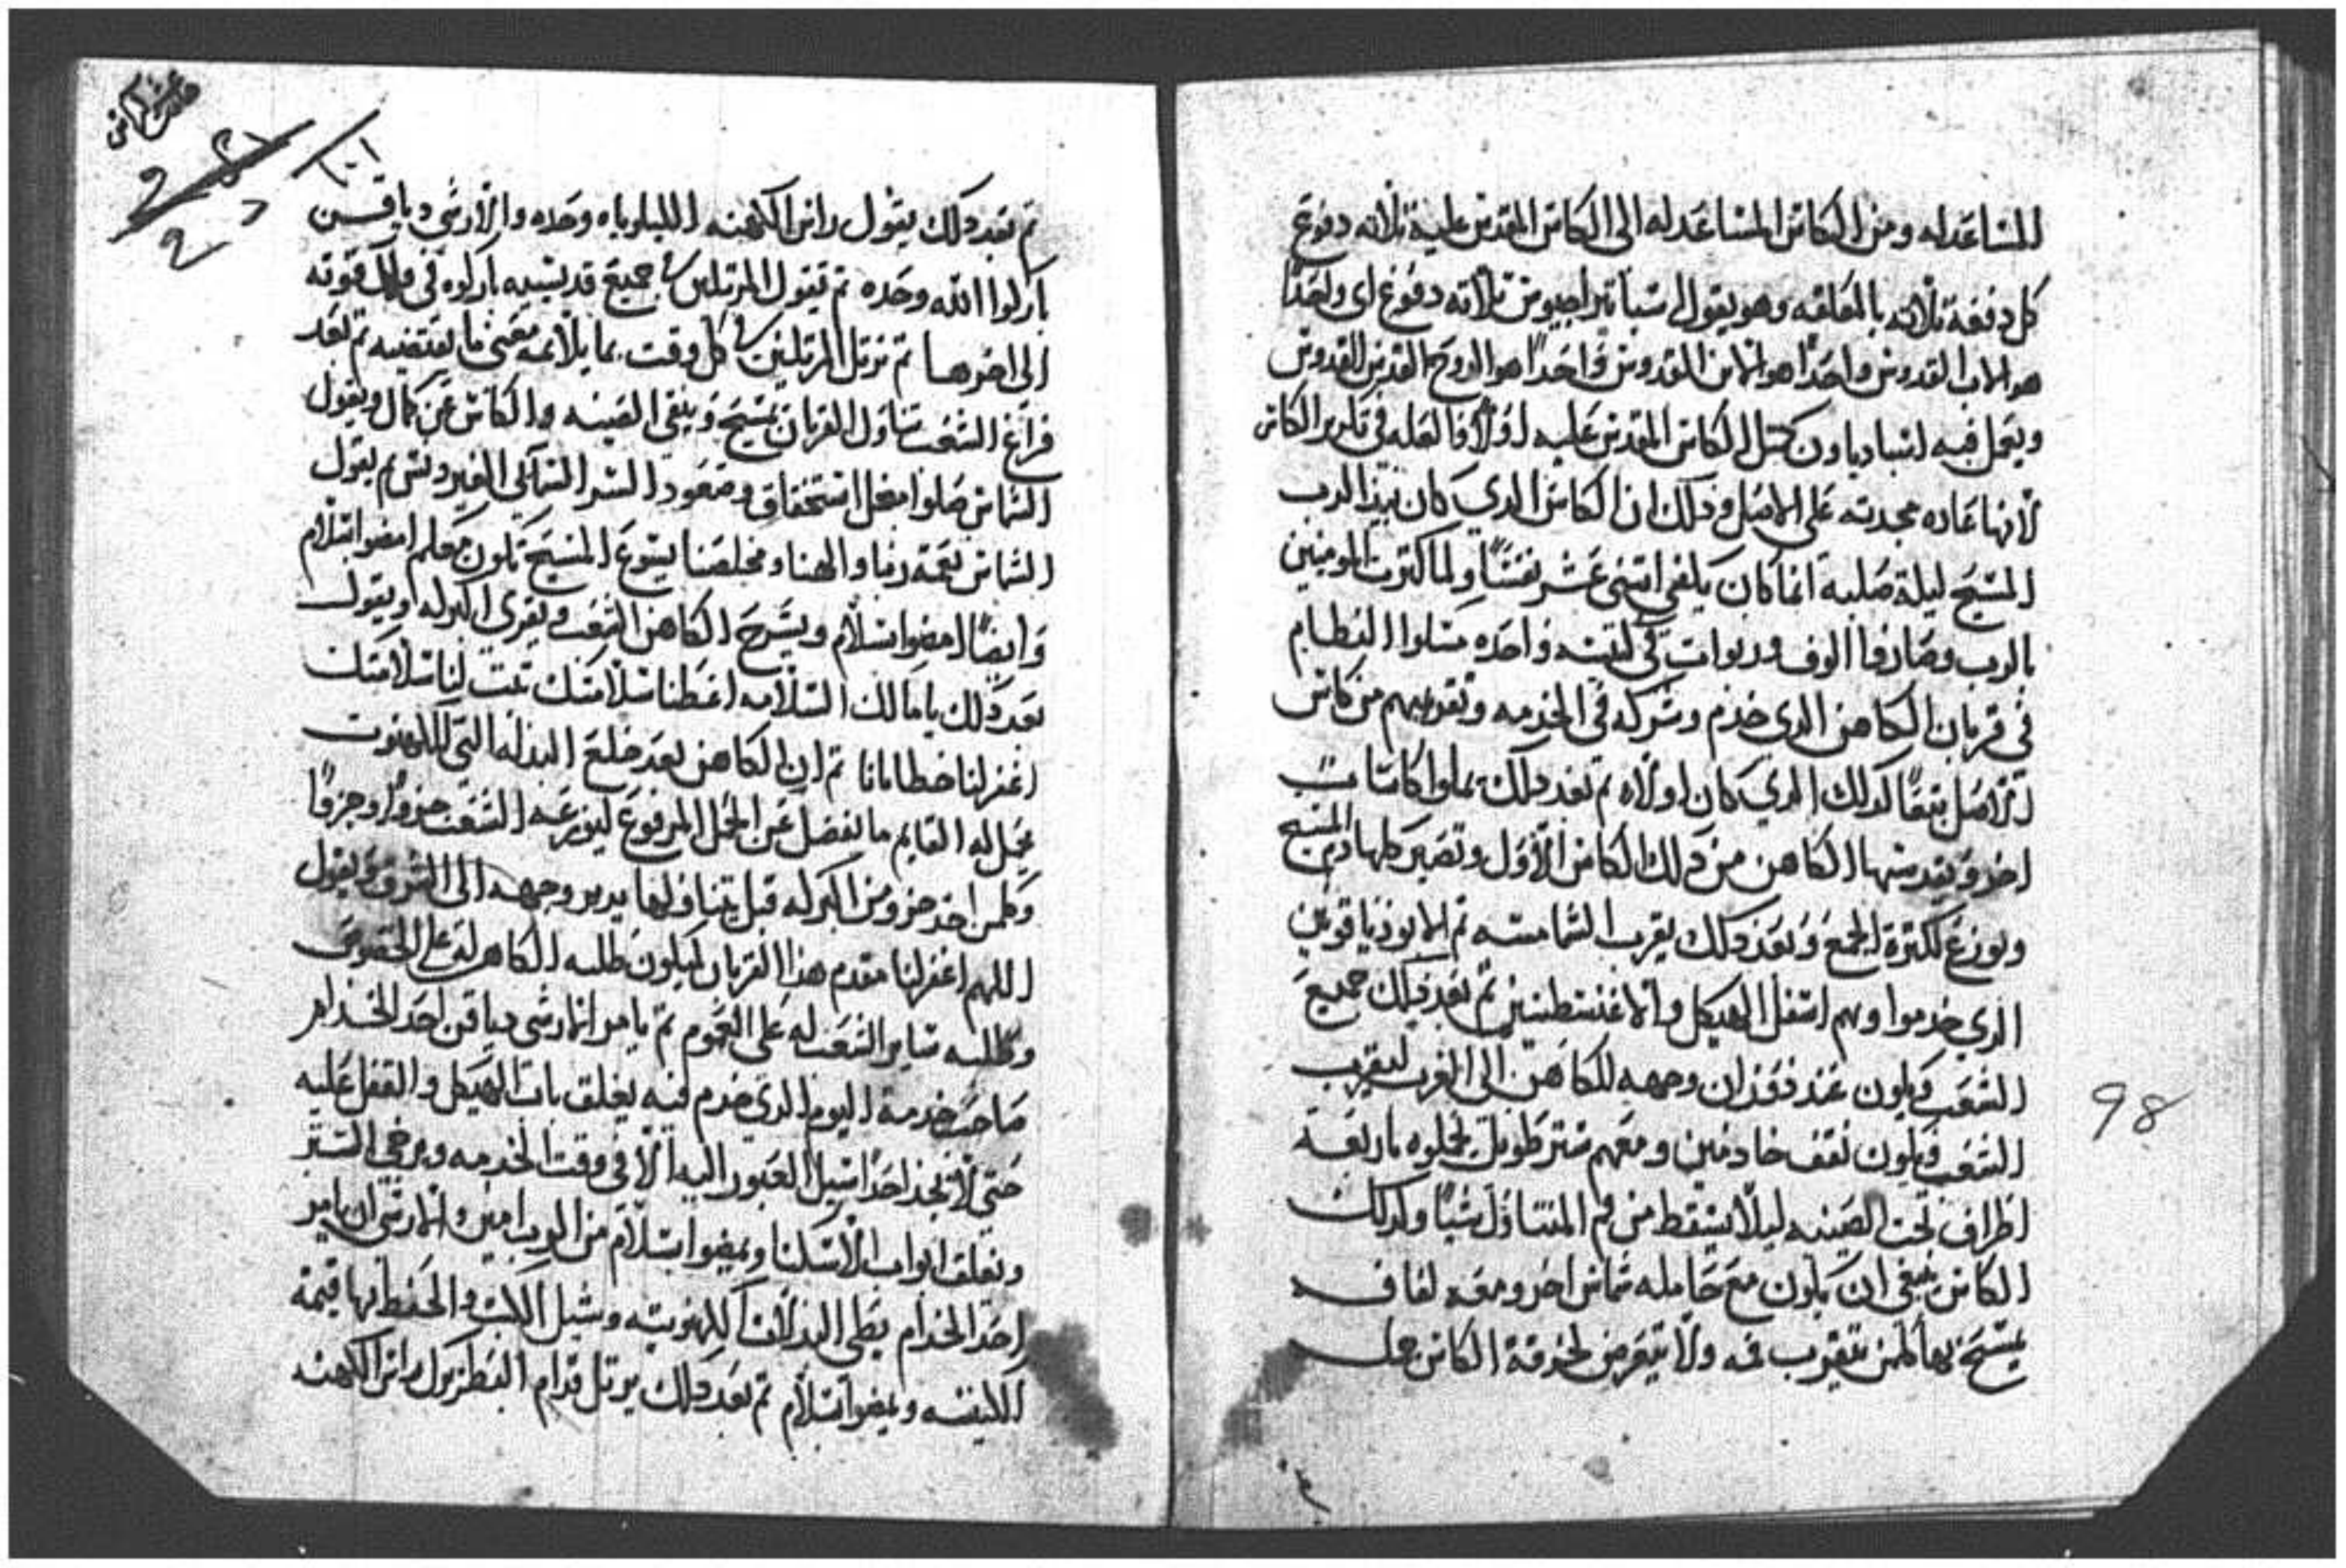 المساعده له ومن الكاس المساعد له الى الكاس المقدس عليه تلاته دفوع
كل دفعة تلاته بالمعلقه وهو يقول تلاته دفوع اى واحدًا
هو الاب القدوس واحدًا هو الابن القدوس واحدًا هو الروح القدس القدوس
ويعمل فيه الكاس المقدس عليه اولًا والعله في تكرير الكاس
لأنها عاده مجدده على الاصل وذلك ان الكاس الدي كان بيد الرب
المسيح ليلة صلبه انما كان يكفي اتنى عشر نفسًا ولما كترت المومنين
بالرب وصاروا الوف وربوات في كنيسه واحده
في قربان الكاهن الدي خدم وشركه في الخدمه وتقريبهم من كاس
الأصل كدلك الدي كان اولاه تم بعد دلك يملوا كاسات
اخر ويقدسها الكاهن من دلك الكاس الأول وتصير كلها دم المسيح
ويوزع لكترة الجمع وبعد دلك يقرب الشمامسه تم الابودياقونين
الدي خدموا وهم اسفل الهيكل والاغنسطسين تم بعد دلك جميع
الشعب ويكون عند وجهه للكاهن الى الغرب ليقرب
الشعب ويكون نقف خادمين ومعهم ستر طويل يمسكوه باربعة
اطراف تحت الصينيه ليلا يسقط من فم المتناول شيًا وكدلك
الكاس ينبغي ان يكون مع حامله شماس اخر ومعه لفافه
يمسح بها لمن يتقرب فمه ولا يتعرض لخدمة الكاس
98
١٠١
تم بعد دلك يقول راس الكهنه الليلوياه وحده والأرشي دياقن
باركوا الله وحده تم يقول المرتلين جميع قديسيه باركوه في فلك قوته
الى اخرها تم ترتل المرتلين كل وقت بما يلائمه معنى ما يقتضيه تم بعد
فراغ الشعب تناول القربان يمسح وينقي الصينيه والكاس عن كمال ويقول
الشماس صلوا من اجل استحقاق وصعود السر السمائي الفردوس تم يقول
الشماس نعمة ربنا والهنا ومخلصنا يسوع المسيح تكون معكم امضوا بسلام
وايضًا امضوا بسلام ويسرح الكاهن الشعب ويفرق البركه ويقول
بعد دلك يا مالك السلامه اعطنا سلامتك تبت لنا سلامتك
اغفر لنا خطايانا تم ان الكاهن بعد خلع البدله التي للكهنوت
يحمل له القايم ما يفضل عن الحمل المرفوع ليوزعه الشعب جزوًا وجزوًا
وكلمن اخد جزو من البركه قبل يتناولها يدير وجهه الى الشرق ويقول
اللهم اغفر لنا مقدم هدا القربان ليكون طلبه الكاهن له على الخصوص
وطلبه ساير الشعب له على العموم تم يامر الارشي دياقن احد الخدام
صاحب خدمة اليوم الدي خدم فيه يغلق باب الهيكل والقفل عليه
حتى لا يجد احدًا سبيل العبور اليه الا في وقت الخدمه ويرخي الستر
ويغلق ابواب الأسكنا ويمضوا بسلام من الرب امين والارشي ان يامر
احد الخدام يطوي البدلات الكهنوتيه وشيل الالات والحفظ بها قيمة
الكنيسه ويمضوا بسلام تم بعد دلك يرتل قدام البطريرك راس الكهنه